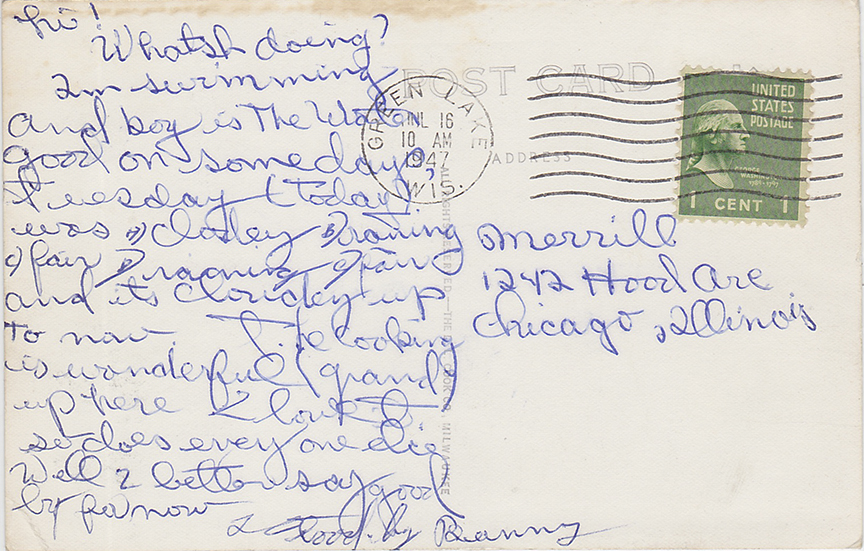 hi!
Whatsh doing?
Im swimming
and boy is The Water
good on somedays,
Tuesday (today)
was 1) cloudey 2) raining
3) fair 4) raining 5) fair
and its cloudey up
To now. The cooking
is wonderful (grand)
up here I love it
so does every one else
Well I better say good
by fa now
Good-by Ranny
POST CARD
ADDRESS
GREEN LAKE
JUL 16
10 AM
1947
WIS.
UNITED
STATES
POSTAGE
GEORGE
WASHINGTON
1789-1797
1 CENT 1
Merrill
1242 Hood Ave
Chicago, Illinois
MILWAUKEE